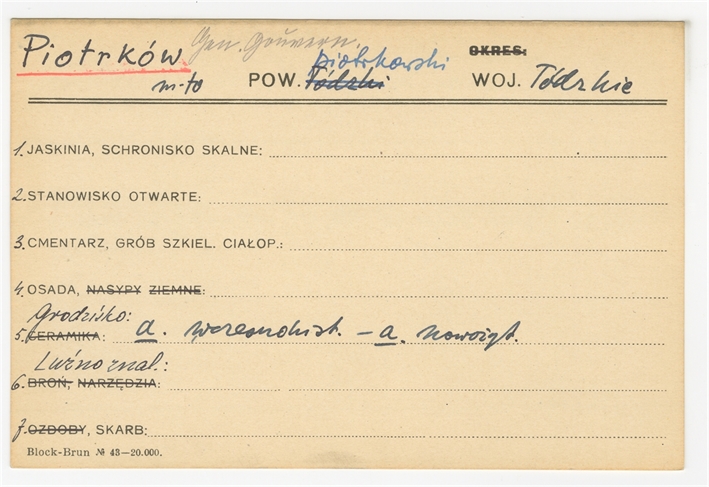 Piotrków Gen. Gouvern. piotrkowski OKRES:
m-to POW. Łódzki WOJ. Łódzkie
1. JASKINIA, SCHRONISKO SKALNE:
2. STANOWISKO OTWARTE:
3. CMENTARZ, GRÓB SZKIEL. CIAŁOP.:
4. OSADA, NASYPY ZIEMNE:
Grodzisko:
5. CERAMIKA: a. wczesnohist. – a. nowożyt.
Luźno znal.:
6. BROŃ, NARZĘDZIA:
7. OZDOBY, SKARB:
Block-Brun № 43—20.000.